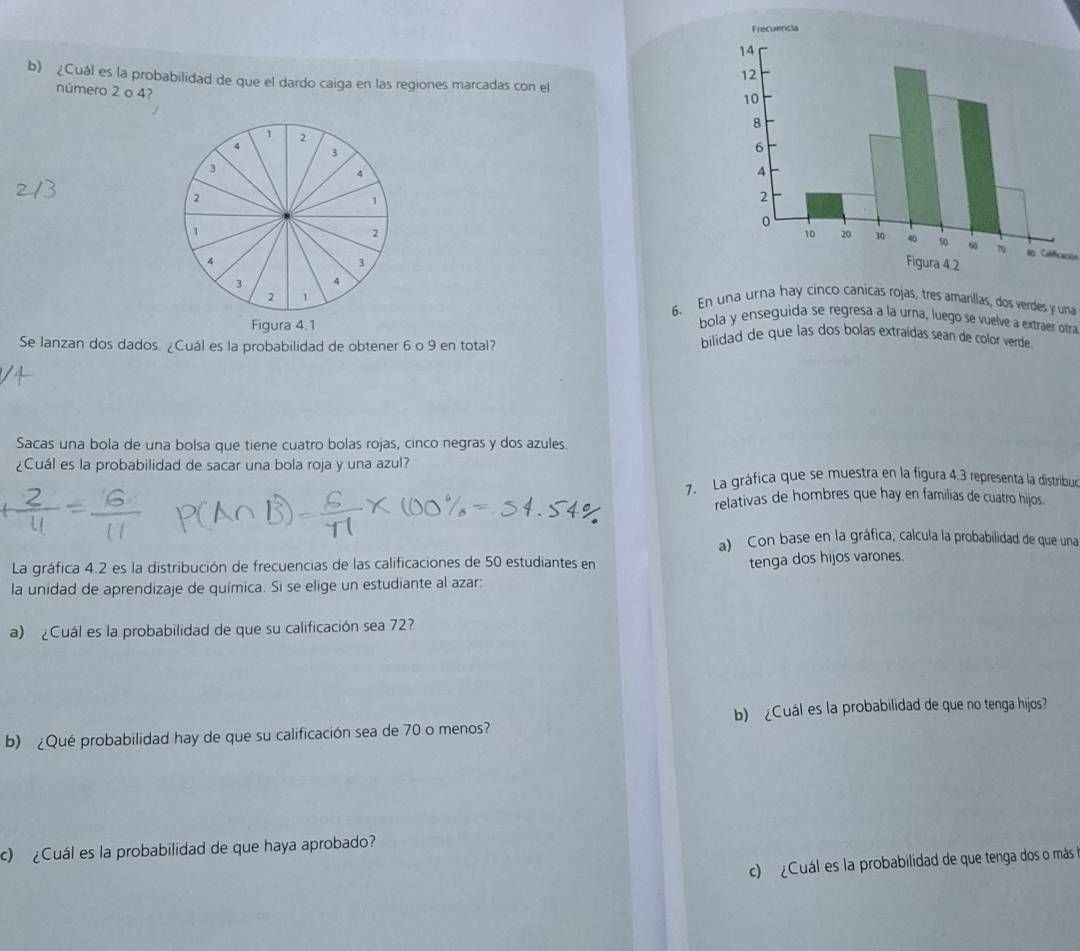 b) ¿Cuál es la probabilidad de que el dardo caiga en las regiones marcadas con el
número 2 o 4?
2/3
1 2 3 4 1 2 3 4 1 2 3 4 1 2 3 4
Figura 4.1
Se lanzan dos dados. ¿Cuál es la probabilidad de obtener 6 o 9 en total?
1/4
Sacas una bola de una bolsa que tiene cuatro bolas rojas, cinco negras y dos azules.
¿Cuál es la probabilidad de sacar una bola roja y una azul?
+ 2/11 = 6/11 P(A∩B) = 6/11 × 100% = 54.54%
La gráfica 4.2 es la distribución de frecuencias de las calificaciones de 50 estudiantes en
la unidad de aprendizaje de química. Si se elige un estudiante al azar:
a) ¿Cuál es la probabilidad de que su calificación sea 72?
b) ¿Qué probabilidad hay de que su calificación sea de 70 o menos?
c) ¿Cuál es la probabilidad de que haya aprobado?
Frecuencia
14
12
10
8
6
4
2
0
10 20 30 40 50 60 70 80 Calificación
Figura 4.2
6. En una urna hay cinco canicas rojas, tres amarillas, dos verdes y una
bola y enseguida se regresa a la urna, luego se vuelve a extraer otra
bilidad de que las dos bolas extraídas sean de color verde.
7. La gráfica que se muestra en la figura 4.3 representa la distribuc
relativas de hombres que hay en familias de cuatro hijos.
a) Con base en la gráfica, calcula la probabilidad de que una
tenga dos hijos varones.
b) ¿Cuál es la probabilidad de que no tenga hijos?
c) ¿Cuál es la probabilidad de que tenga dos o más